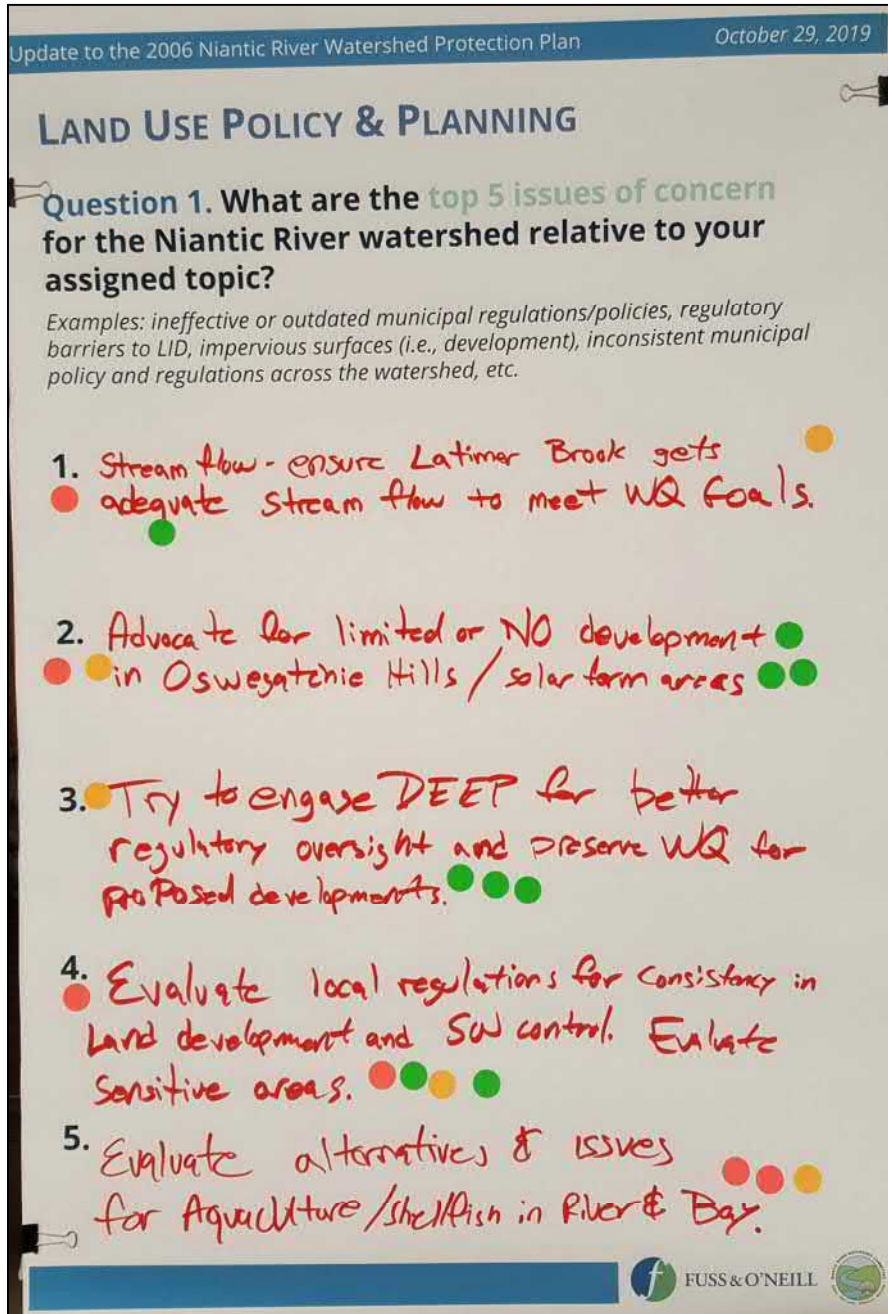 Update to the 2006 Niantic River Watershed Protection Plan October 29, 2019
LAND USE POLICY & PLANNING
Question 1. What are the top 5 issues of concern
for the Niantic River watershed relative to your
assigned topic?
Examples: ineffective or outdated municipal regulations/policies, regulatory
barriers to LID, impervious surfaces (i.e., development), inconsistent municipal
policy and regulations across the watershed, etc.
1. Stream flow - ensure Latimer Brook gets
adequate stream flow to meet WQ Goals.
2. Advocate for limited or NO development
in Oswegatchie Hills / solar farm areas
3. Try to engage DEEP for better
regulatory oversight and preserve WQ for
proposed developments.
4. Evaluate local regulations for consistancy in
Land development and SW control. Evaluate
Sensitive areas.
5. Evaluate alternatives & issues
for Aquaculture/shellfish in River & Bay.
f FUSS & O'NEILL